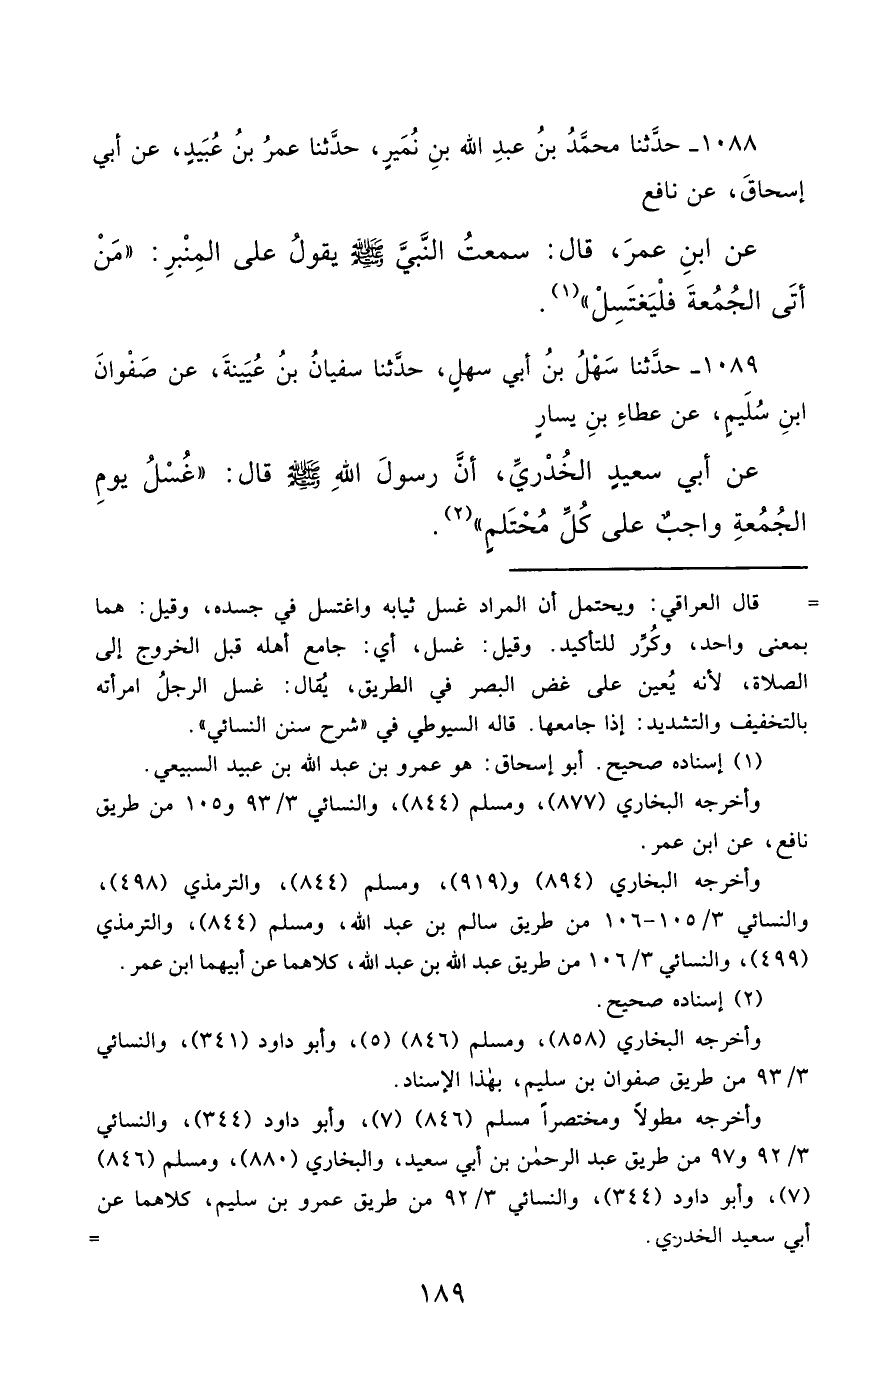 ١٠٨٨ـ حدَّثنا محمَّدُ بنُ عبدِ الله بنِ نُمَيرٍ، حدَّثنا عمرُ بنُ عُبَيدٍ، عن أبي
إسحاقَ، عن نافع
عن ابنِ عمرَ، قال: سمعتُ النَّبيَّ ﷺ يقولُ على المِنْبرِ: «مَنْ
أتَى الجُمُعةَ فلْيَغتَسِلْ»(١).
١٠٨٩ـ حدَّثنا سَهْلُ بنُ أبي سهلٍ، حدَّثنا سفيانُ بنُ عُيَينةَ، عن صَفْوانَ
ابنِ سُلَيمٍ، عن عطاءِ بنِ يسارٍ
عن أبي سعيدٍ الخُدْريِّ، أنَّ رسولَ اللهِ ﷺ قال: «غُسْلُ يومِ
الجُمُعةِ واجبٌ على كُلِّ مُحْتَلمٍ»(٢).
= قال العراقي: ويحتمل أن المراد غسل ثيابه واغتسل في جسده، وقيل: هما
بمعنى واحد، وكُرِّر للتأكيد. وقيل: غسل، أي: جامع أهله قبل الخروج إلى
الصلاة، لأنه يُعين على غض البصر في الطريق، يُقال: غسل الرجلُ امرأته
بالتخفيف والتشديد: إذا جامعها. قاله السيوطي في «شرح سنن النسائي».
(١) إسناده صحيح. أبو إسحاق: هو عمرو بن عبد الله بن عبيد السبيعي.
وأخرجه البخاري (٨٧٧)، ومسلم (٨٤٤)، والنسائي ٩٣/٣ و١٠٥ من طريق
نافع، عن ابن عمر.
وأخرجه البخاري (٨٩٤) و(٩١٩)، ومسلم (٨٤٤)، والترمذي (٤٩٨)،
والنسائي ١٠٥/٣-١٠٦ من طريق سالم بن عبد الله، ومسلم (٨٤٤)، والترمذي
(٤٩٩)، والنسائي ١٠٦/٣ من طريق عبد الله بن عبد الله، كلاهما عن أبيهما ابن عمر.
(٢) إسناده صحيح.
وأخرجه البخاري (٨٥٨)، ومسلم (٨٤٦) (٥)، وأبو داود (٣٤١)، والنسائي
٩٣/٣ من طريق صفوان بن سليم، بهٰذا الإسناد.
وأخرجه مطولاً ومختصراً مسلم (٨٤٦) (٧)، وأبو داود (٣٤٤)، والنسائي
٩٢/٣ و٩٧ من طريق عبد الرحمٰن بن أبي سعيد، والبخاري (٨٨٠)، ومسلم (٨٤٦)
(٧)، وأبو داود (٣٤٤)، والنسائي ٩٢/٣ من طريق عمرو بن سليم، كلاهما عن
أبي سعيد الخدري. =
١٨٩